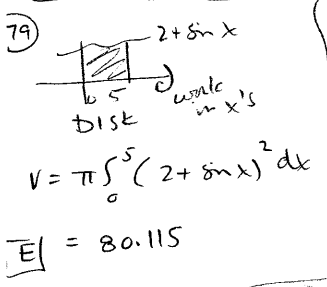 79
2 + sin x
0 5
work
in x's
DISK
V = π ∫₀⁵ (2 + sin x)² dx
E = 80.115